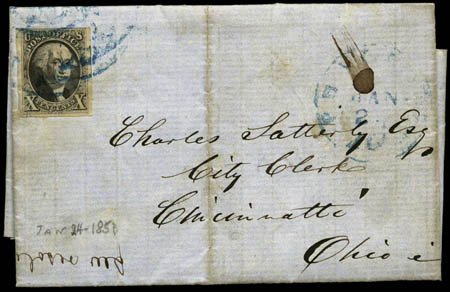 POST OFFICE
X TEN CENTS X
JAN
Charles Satterly Esq
City Clerk
Cincinnatti
Ohio
JAN 24-1851